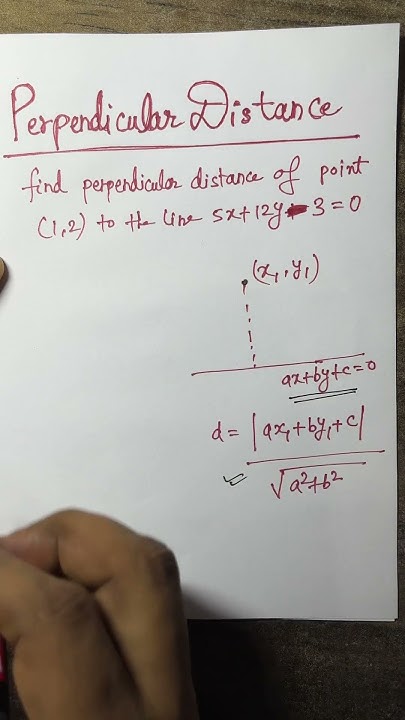 Perpendicular Distance
find perpendicular distance of point
(1,2) to the line 5x+12y-3=0
(x₁,y₁)
ax+by+c=0
d = |ax₁+by₁+c|
√a²+b²